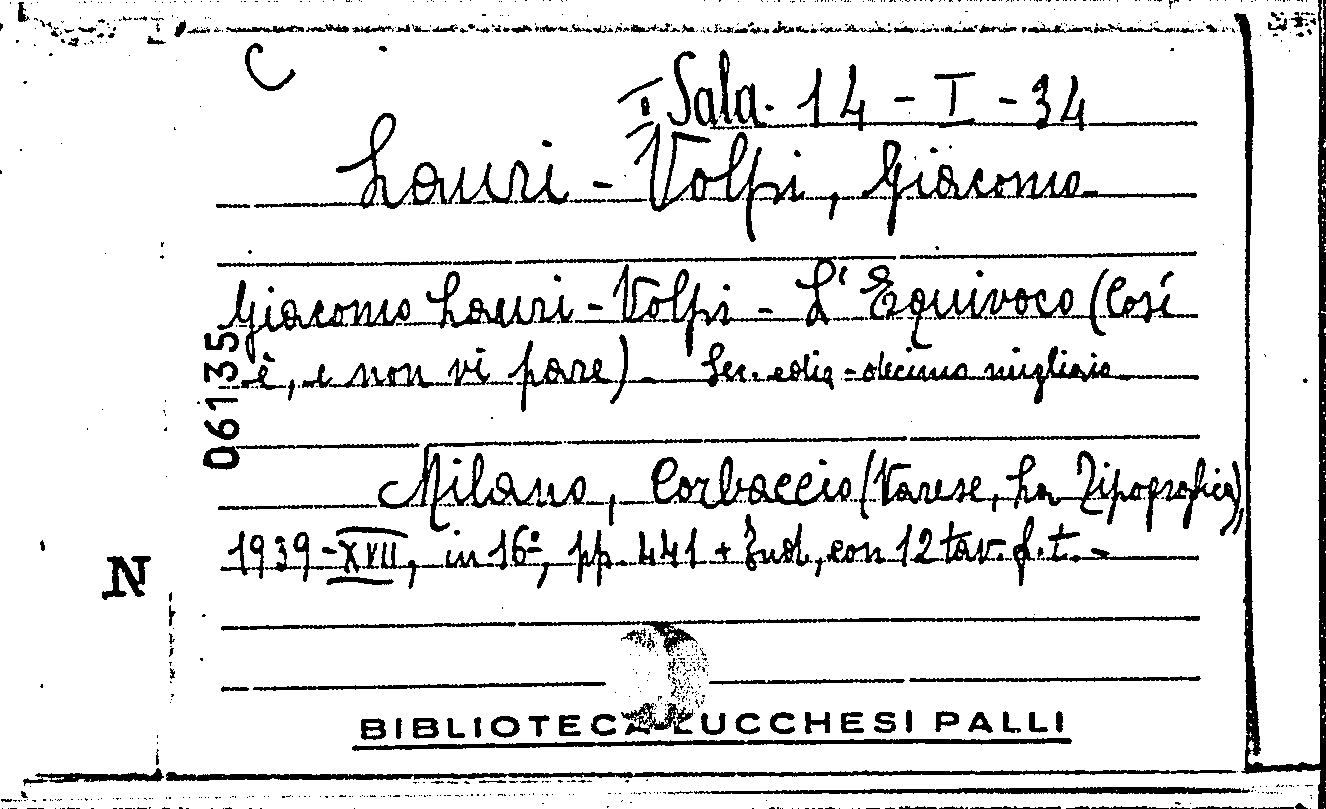 C
I Sala. 14 - I - 34
Lauri - Volpi, Giacomo
Giacomo Lauri - Volpi - L'Equivoco (Così
è, e non vi pare) - Sec. ediz. - decimo migliaio
Milano, Corbaccio (Varese, La Tipografica),
1939 - XVII, in 16°, pp. 441 + Ind., con 12 tav. f. t. -
061135
N
BIBLIOTECA LUCCHESI PALLI